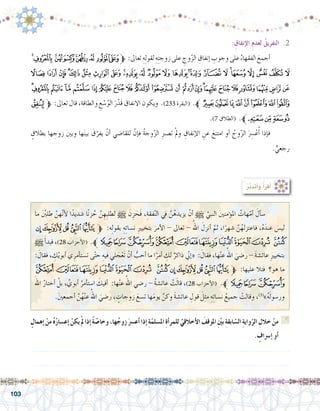 2. التفريق لعدم الإنفاق:
أجمع الفقهاء على وجوب إنفاق الزوج على زوجته لقوله تعالى: ﴿ وَعَلَى ٱلْمَوْلُودِ لَهُۥ رِزْقُهُنَّ وَكِسْوَتُهُنَّ بِٱلْمَعْرُوفِ ۚ
لَا تُكَلَّفُ نَفْسٌ إِلَّا وُسْعَهَا ۚ لَا تُضَآرَّ وَٰلِدَةٌۢ بِوَلَدِهَا وَلَا مَوْلُودٌ لَّهُۥ بِوَلَدِهِۦ ۚ وَعَلَى ٱلْوَارِثِ مِثْلُ ذَٰلِكَ ۗ فَإِنْ أَرَادَا فِصَالًا
عَن تَرَاضٍ مِّنْهُمَا وَتَشَاوُرٍ فَلَا جُنَاحَ عَلَيْهِمَا ۗ وَإِنْ أَرَدتُّمْ أَن تَسْتَرْضِعُوٓا۟ أَوْلَٰدَكُمْ فَلَا جُنَاحَ عَلَيْكُمْ إِذَا سَلَّمْتُم مَّآ ءَاتَيْتُم بِٱلْمَعْرُوفِ ۗ
وَٱتَّقُوا۟ ٱللَّهَ وَٱعْلَمُوٓا۟ أَنَّ ٱللَّهَ بِمَا تَعْمَلُونَ بَصِيرٌ ﴾. (البقرة 233)، ويكون الإنفاق قدر الوسع والطاقة، قال تعالى: ﴿ لِيُنفِقْ
ذُو سَعَةٍ مِّن سَعَتِهِۦ ﴾. (الطلاق 7).
فإذا أعسر الزوج أو امتنع عن الإنفاق ولم تصبر الزوجة فإن للقاضي أن يفرق بينها وبين زوجها بطلاق
رجعي.
أقرأ وأتدبر
سأل أمهات المؤمنين النبي ﷺ أن يزيدهن في النفقة، فحزن ﷺ لطلبهن حزنا شديدا لأنهن طلبن ما
ليس عنده، فاعتزلهن شهرا، ثم أنزل الله – تعالى – الأمر بتخيير نسائه بقوله: ﴿ يَٰٓأَيُّهَا ٱلنَّبِىُّ قُل لِّأَزْوَٰجِكَ إِن
كُنتُنَّ تُرِدْنَ ٱلْحَيَوٰةَ ٱلدُّنْيَا وَزِينَتَهَا فَتَعَالَيْنَ أُمَتِّعْكُنَّ وَأُسَرِّحْكُنَّ سَرَاحًا جَمِيلًا ﴾. (الأحزاب 28)، فبدأ ﷺ
بتخيير عائشة – رضي الله عنها، فقال: «إني ذاكر لك أمرا ما أحب أن تعجلي فيه حتى تستأمري أبويك، فقال:
ما هو؟ فتلا عليها: ﴿ يَٰٓأَيُّهَا ٱلنَّبِىُّ قُل لِّأَزْوَٰجِكَ إِن كُنتُنَّ تُرِدْنَ ٱلْحَيَوٰةَ ٱلدُّنْيَا وَزِينَتَهَا فَتَعَالَيْنَ أُمَتِّعْكُنَّ
وَأُسَرِّحْكُنَّ سَرَاحًا جَمِيلًا ﴾. (الأحزاب 28)، قالت عائشة – رضي الله عنها: أفيك أستأمر أبوي، بل أختار الله
ورسوله»، وقالت جميع نسائه مثل قول عائشة وكن يومها تسع زوجات، رضي الله عنهن أجمعين.
من خلال الرواية السابقة بين الموقف الأخلاقي للمرأة المسلمة إذا أعسر زوجها، وخاصة إذا لم يكن إعساره من إهمال
أو إسراف.
103